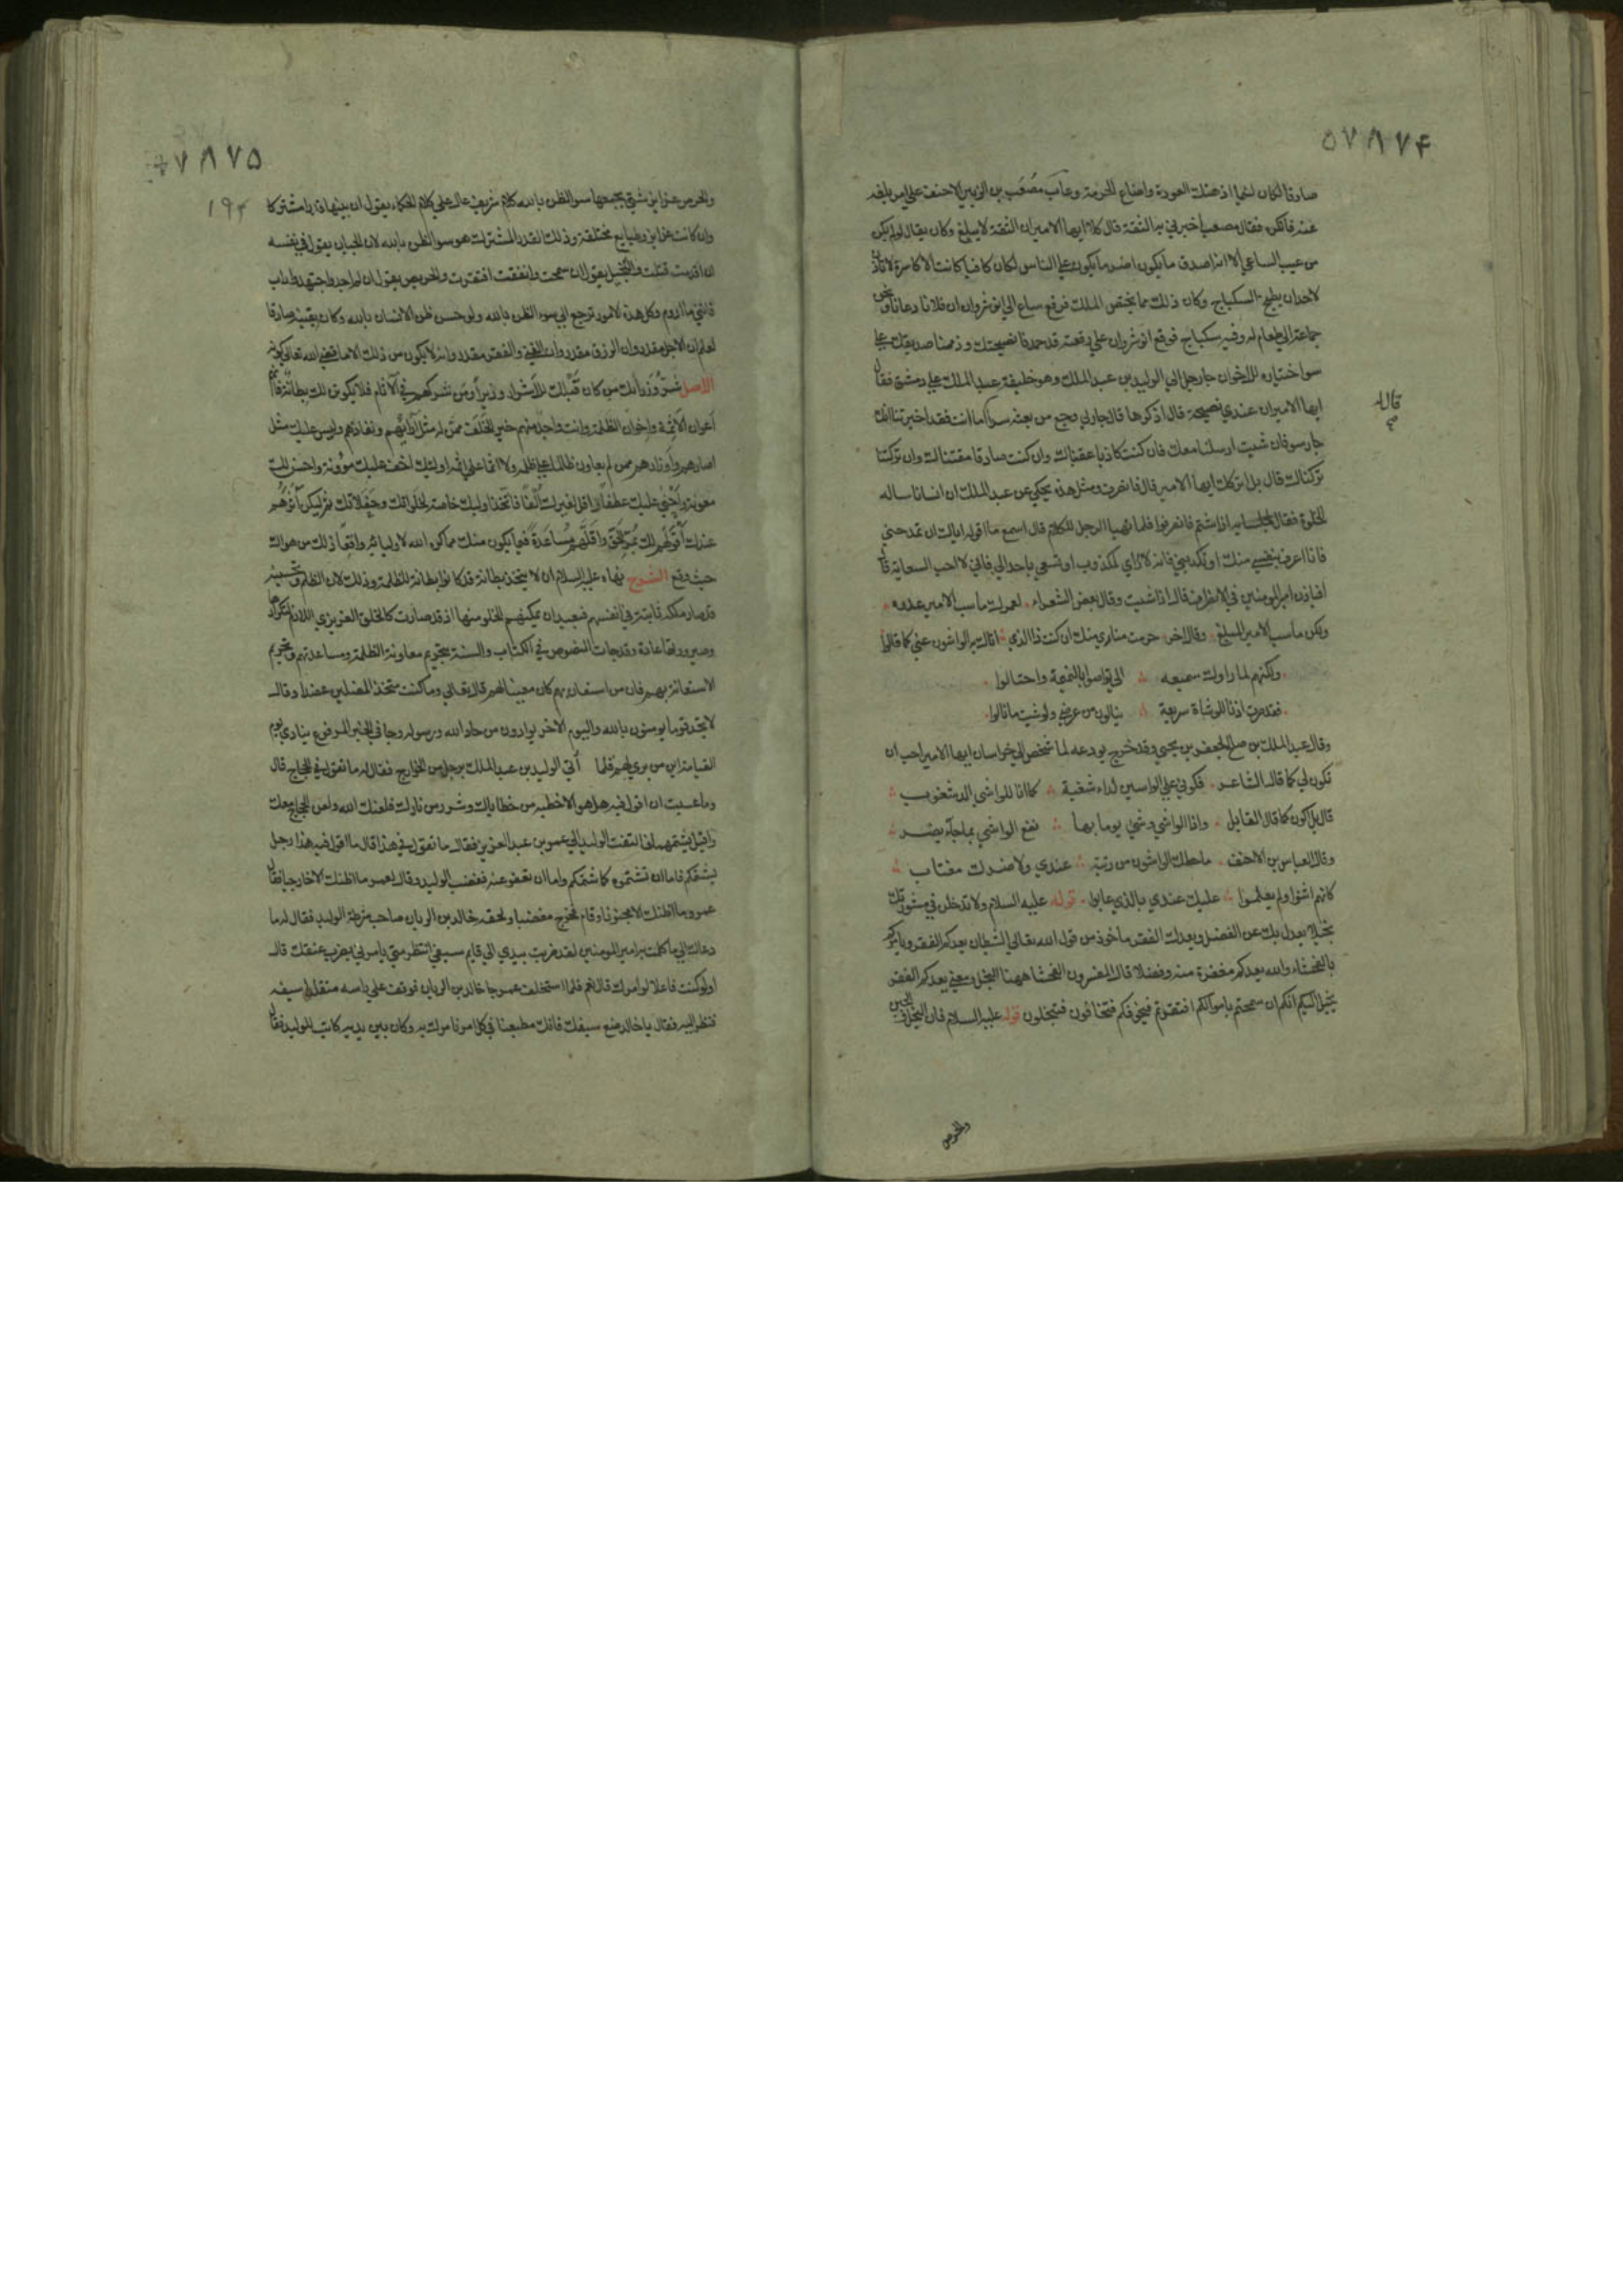 ۵۷۸۷۴
صادقا لكان لئيما اذ هتك العورة واضاع الحرمة وعاتب مصعب بن الزبير الاحنف على امر بلغه
عنه فانكره فقال مصعب اخبرني به الثقة قال كلا ايها الامير ان الثقة لا يبلغ وكان يقال لو لم يكن
من عيب الساعي الا انه اصدق ما يكون اضر ما يكون على الناس لكان كافيا كانت الاكاسرة لا تاذن
لاحد ان يطبخ السكباج وكان ذلك مما يختص الملك فرفع ساع الى انوشروان ان فلانا دعانا ونحن
جماعة الى طعام له وفيه سكباج فوقع انوشروان على رقعته قد حمدنا نصيحتك وذممنا صديقك على
سوا اختياره للاخوان جا رجل الى الوليد بن عبد الملك وهو خليفة عبد الملك على دمشق فقال
ايها الامير ان عندي نصيحة قال اذكرها قال جار لي رجع من بعثه سرا قال اما انت فقد اخبرتنا انك
قاله صح
جار سو فان شيت ارسلنا معك فان كنت كاذبا عاقبناك وان كنت صادقا مقتناك وان تركتنا
تركناك قال بل اتركك ايها الامير قال فانصرف ومثل هذه يحكى عن عبد الملك ان انسانا ساله
الخلوة فقال لجلسايه اذا شيتم فانصرفوا فلما تهيا الرجل للكلام قال اسمع ما اقول اياك ان تمدحني
فانا اعرف بنفسي منك او تكذبني فانه لا راي لمكذوب او تسعى باحد الي فاني لا احب السعاية قال
افياذن امير المومنين في الانصراف قال اذا شيت وقال بعض الشعراء لعمرك ما سب الامير عدوه
ولكن ما سب الامير المبلغ وقال اخر حرمت مناي منك ان كنت ذا الذي اتاك به الواشون عني كما قالوا
ولكنهم لما راوك سميعه الي تواصوا بالنميمة واحتالوا
فقد صرت اذنا للوشاة سريعة ينالون من عرضي ولو شيت ما نالوا
وقال عبد الملك بن صالح لجعفر بن يحيى وقد خرج يودعه لما شخص الى خراسان ايها الامير احب ان
تكون لي كما قال الشاعر فكوني على الواشين لداء شغبة كما انا للواشي الد شغوب
قال بل اكون كما قال القايل واذا الواشي وشى يوما بها نفع الواشي بما جاء يضر
وقال العباس بن الاحنف ما حطك الواشون من رتبة عندي ولا ضرك مغتاب
كانهم اثنوا ولم يعلموا عليك عندي بالذي عابوا قوله عليه السلام ولا تدخلن في مشورتك
بخيلا يعدل بك عن الفضل ويعدك الفقر ماخوذ من قول الله تعالى الشيطان يعدكم الفقر ويامركم
بالفحشاء والله يعدكم مغفرة منه وفضلا قال المفسرون الفحشا ههنا البخل ومعنى يعدكم الفقر
يخيل اليكم انكم ان سمحتم باموالكم افتقرتم فيخوفكم فتخافون فتبخلون قوله عليه السلام فان البخل والجبن
والحرص
۵۷۸۷۵
۱۹۴
والحرص غرايز شتى يجمعها سو الظن بالله كلام شريف عال على كلام الحكماء يقول ان بينها قدرا مشتركا
وان كانت غرايز وطبايع مختلفة وذلك القدر المشترك هو سو الظن بالله لان الجبان يقول في نفسه
ان اقدمت قتلت والبخيل يقول ان سمحت وانفقت افتقرت والحريص يقول ان لم اجد واجتهد واداب
فاتني ما اروم وكل هذه الامور ترجع الى سوء الظن بالله ولو حسن ظن الانسان بالله وكان يقينه صادقا
لعلم ان الاجل مقدر وان الرزق مقدر وان الغنى والفقر مقدر وانه لا يكون من ذلك الا ما قضى الله تعالى كونه
الاصل شر وزرائك من كان قبلك للاشرار وزيرا ومن شركهم في الآثام فلا يكونن لك بطانة فانهم
اعوان الاثمة واخوان الظلمة وانت واجد منهم خير الخلف ممن له مثل آرائهم ونفاذهم وليس عليه مثل
اصارهم واوزارهم ممن لم يعاون ظالما على ظلمه ولا آثما على اثمه اوليك اخف عليك مؤونة واحسن لك
معونة واحنى عليك عطفا واقل لغيرك الفا فاتخذ اوليك خاصة لخلواتك وحفلاتك ثم ليكن آثرهم
عندك اقولهم لك بمر الحق واقلهم مساعدة فيما يكون منك مما كره الله لاوليائه واقعا ذلك من هواك
حيث وقع الشرح نهاه عليه السلام ان لا يتخذ بطانة قد كانوا بطانة للظلمة وذلك لان الظلم وتحسينه
قد صار ملكة ثابتة في انفسهم فبعيد ان يمكنهم الخلو منها اذ قد صارت كالخلق الغريزي اللازم لتكرارها
وصيرورتها عادة وقد جات النصوص في الكتاب والسنة بتحريم معاونة الظلمة ومساعدتهم وتحريم
الاستعانة بهم فان من استعان بهم كان معينا لهم قال تعالى وما كنت متخذ المضلين عضدا وقال
لا تجد قوما يومنون بالله واليوم الاخر يوادون من حاد الله ورسوله وجا في الخبر المرفوع ينادى يوم
القيامة اين من برى لهم قلما أتي الوليد بن عبد الملك برجل من الخوارج فقال له ما تقول في الحجاج قال
وما عسيت ان اقول فيه هل هو الا خطية من خطاياك وشرر من نارك فلعنك الله ولعن الحجاج معك
واقبل يشتمهما فالتفت الوليد الى عمر بن عبد العزيز فقال ما تقول في هذا قال ما اقول فيه هذا رجل
يشتمكم فاما ان تشتموه كما شتمكم واما ان تعفو عنه فغضب الوليد وقال لعمر ما اظنك الا خارجيا فقال
عمر وما اظنك الا مجنونا وقام فخرج مغضبا ولحقه خالد بن الريان صاحب شرطة الوليد فقال له ما
دعاك الى ما كلمت به امير المومنين لقد ضربت بيدي الى قايم سيفي انتظر متى يامرني بضرب عنقك قال
اولو كنت فاعلا لو امرك قال نعم فلما استخلف عمر جا خالد بن الريان فوقف على راسه متقلدا سيفه
فنظر اليه فقال يا خالد ضع سيفك فانك مطيعنا في كل امر نامرك به وكان بين يديه كاتب للوليد فقال